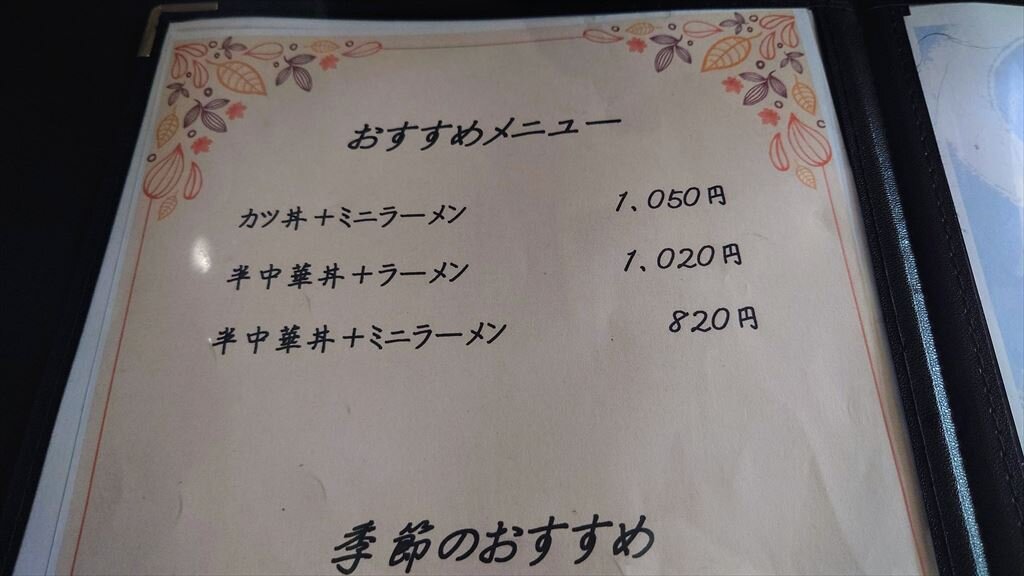 おすすめメニュー
カツ丼＋ミニラーメン 1、050円
半中華丼＋ラーメン 1、020円
半中華丼＋ミニラーメン 820円
季節のおすすめ